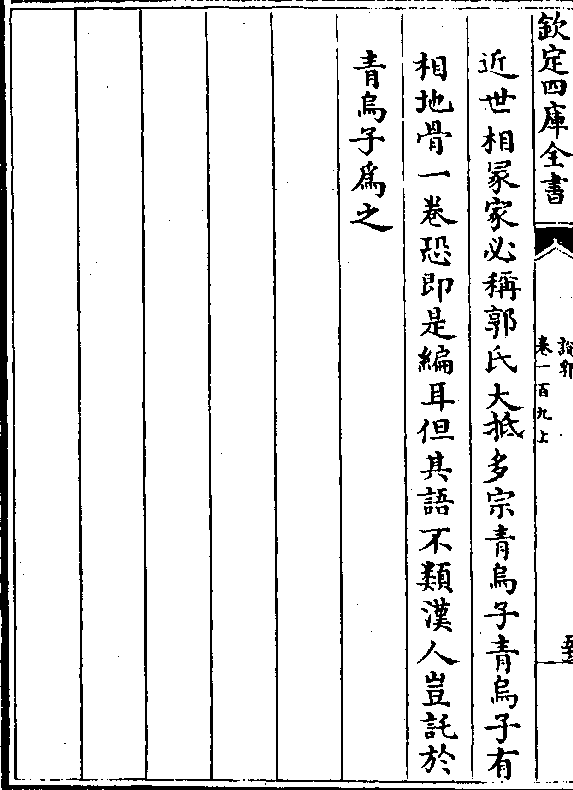 欽定四庫全書
說郛
卷一百九上
近世相冢家必稱郭氏大抵多宗青烏子青烏子有
相地骨一卷恐即是編耳但其語不類漢人豈託於
青烏子爲之